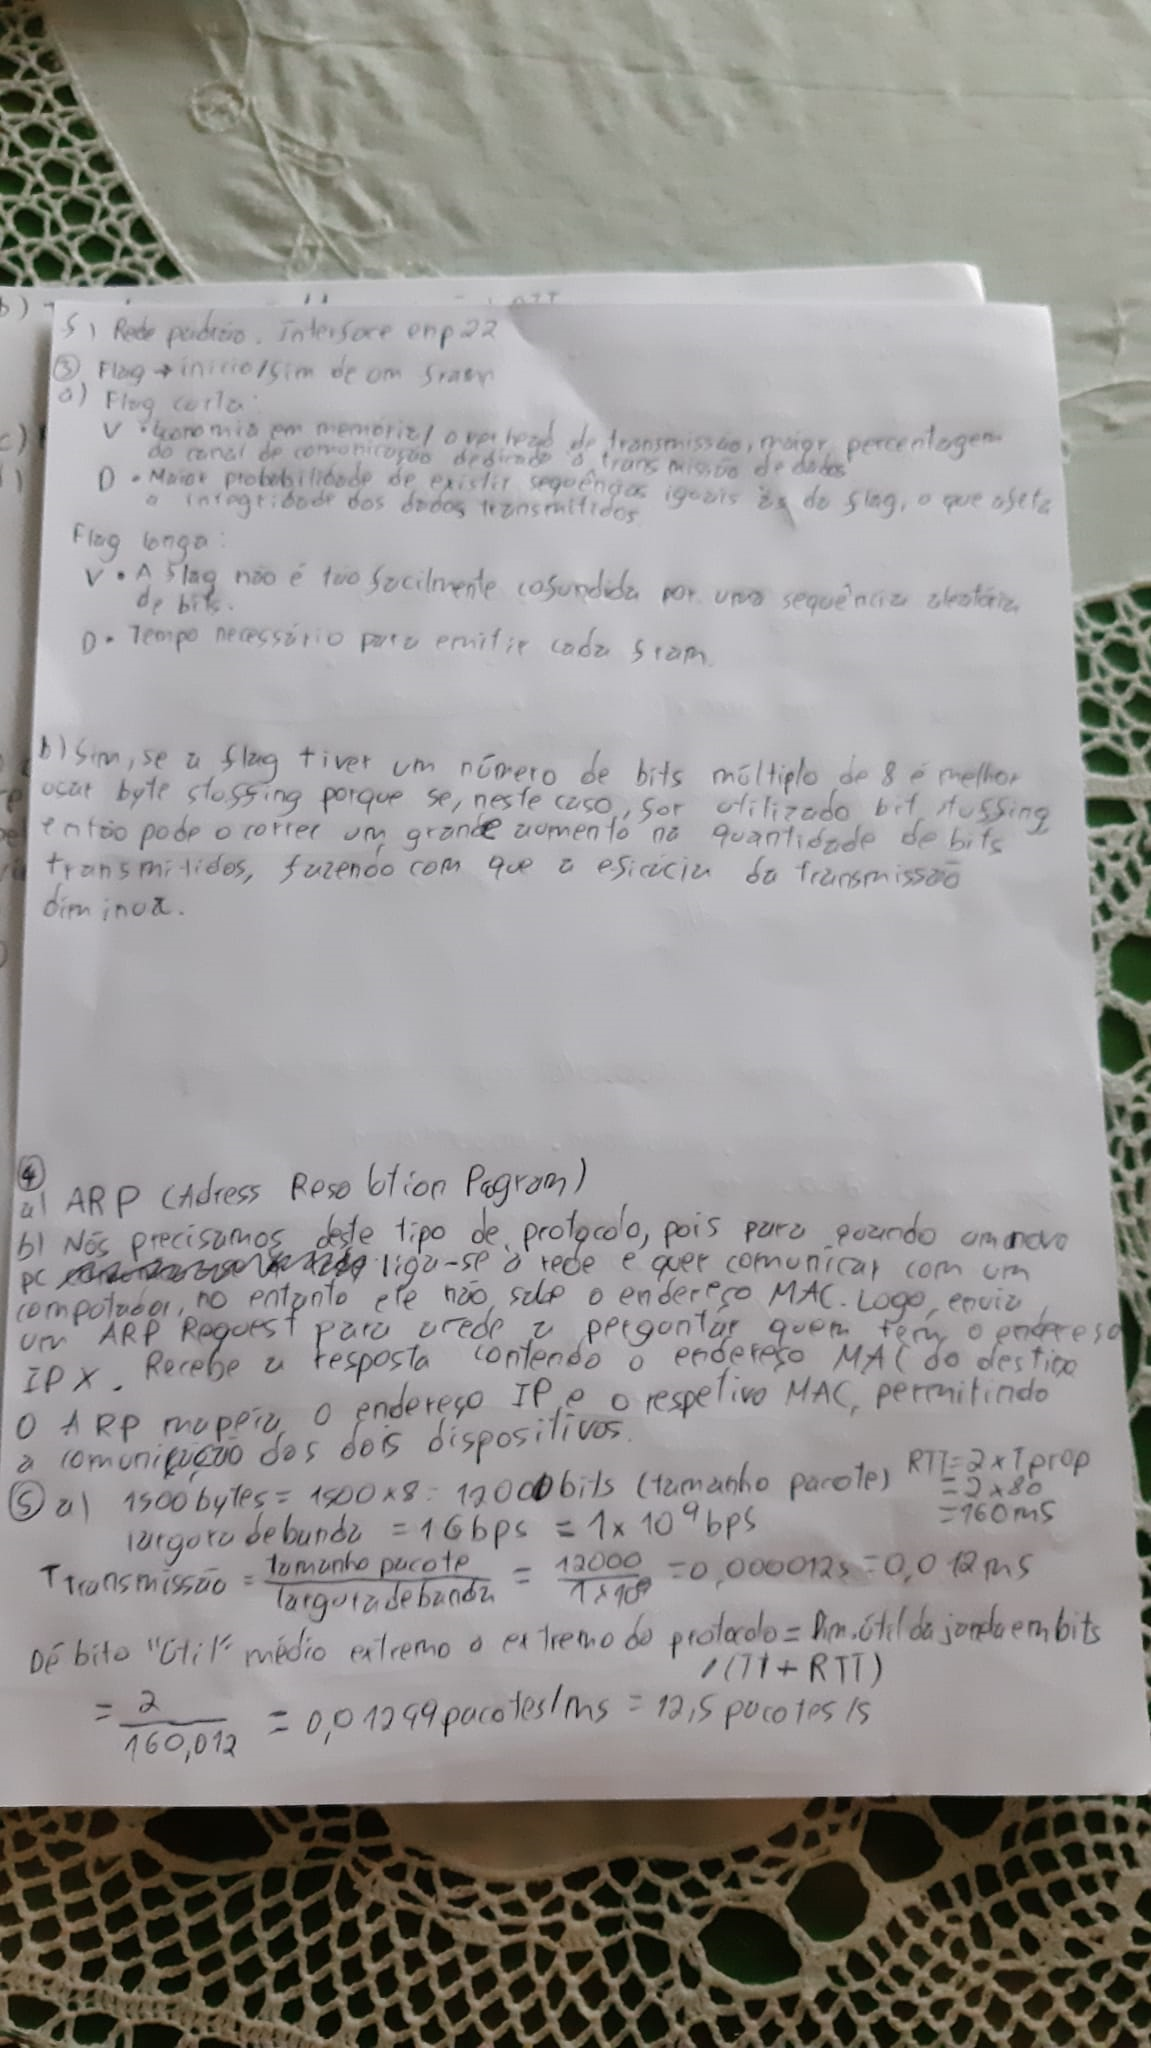 b)
RTT
f) Rede padrão. Interface enp22
③ Flag → início/fim de um fram
a) Flag curta:
V • Economia em memória/overhead de transmissão, maior percentagem
do canal de comunicação dedicado à transmissão de dados
D • Maior probabilidade de existir sequências iguais às da flag, o que afeta
a integridade dos dados transmitidos.
Flag longa:
V • A flag não é tão facilmente cofundida por uma sequência aleatória
de bits.
D • Tempo necessário para emitir cada fram.
b) Sim, se a flag tiver um número de bits múltiplo de 8 é melhor
usar byte stuffing porque se, neste caso, for utilizado bit stuffing
então pode ocorrer um grande aumento na quantidade de bits
transmitidos, fazendo com que a eficácia da transmissão
diminua.
④
a) ARP (Adress Resolution Pogram)
b) Nós precisamos deste tipo de protocolo, pois para quando um novo
pc liga-se à rede e quer comunicar com um
computador, no entanto ele não sabe o endereço MAC. Logo, envia
um ARP Request para a rede a perguntar quem tem o endereso
IP X. Recebe a resposta contendo o endereço MAC do destino
O ARP mapeia o endereço IP e o respetivo MAC, permitindo
a comunicação dos dois dispositivos.
⑤ a) 1500 bytes = 1500 x 8 = 12000 bits (tamanho pacote) RTT = 2 x Tprop
= 2 x 80
= 160 ms
largura de banda = 1 Gbps = 1 x 10^9 bps
Ttransmissão = tamanho pacote / largura de banda = 12000 / 1 x 10^9 = 0,000012s = 0,012 ms
Débito "útil" médio extremo a extremo do protocolo = Dim. útil da janela em bits
/ (Tt + RTT)
= 2 / 160,012 = 0,01249 pacotes/ms = 12,5 pacotes/s